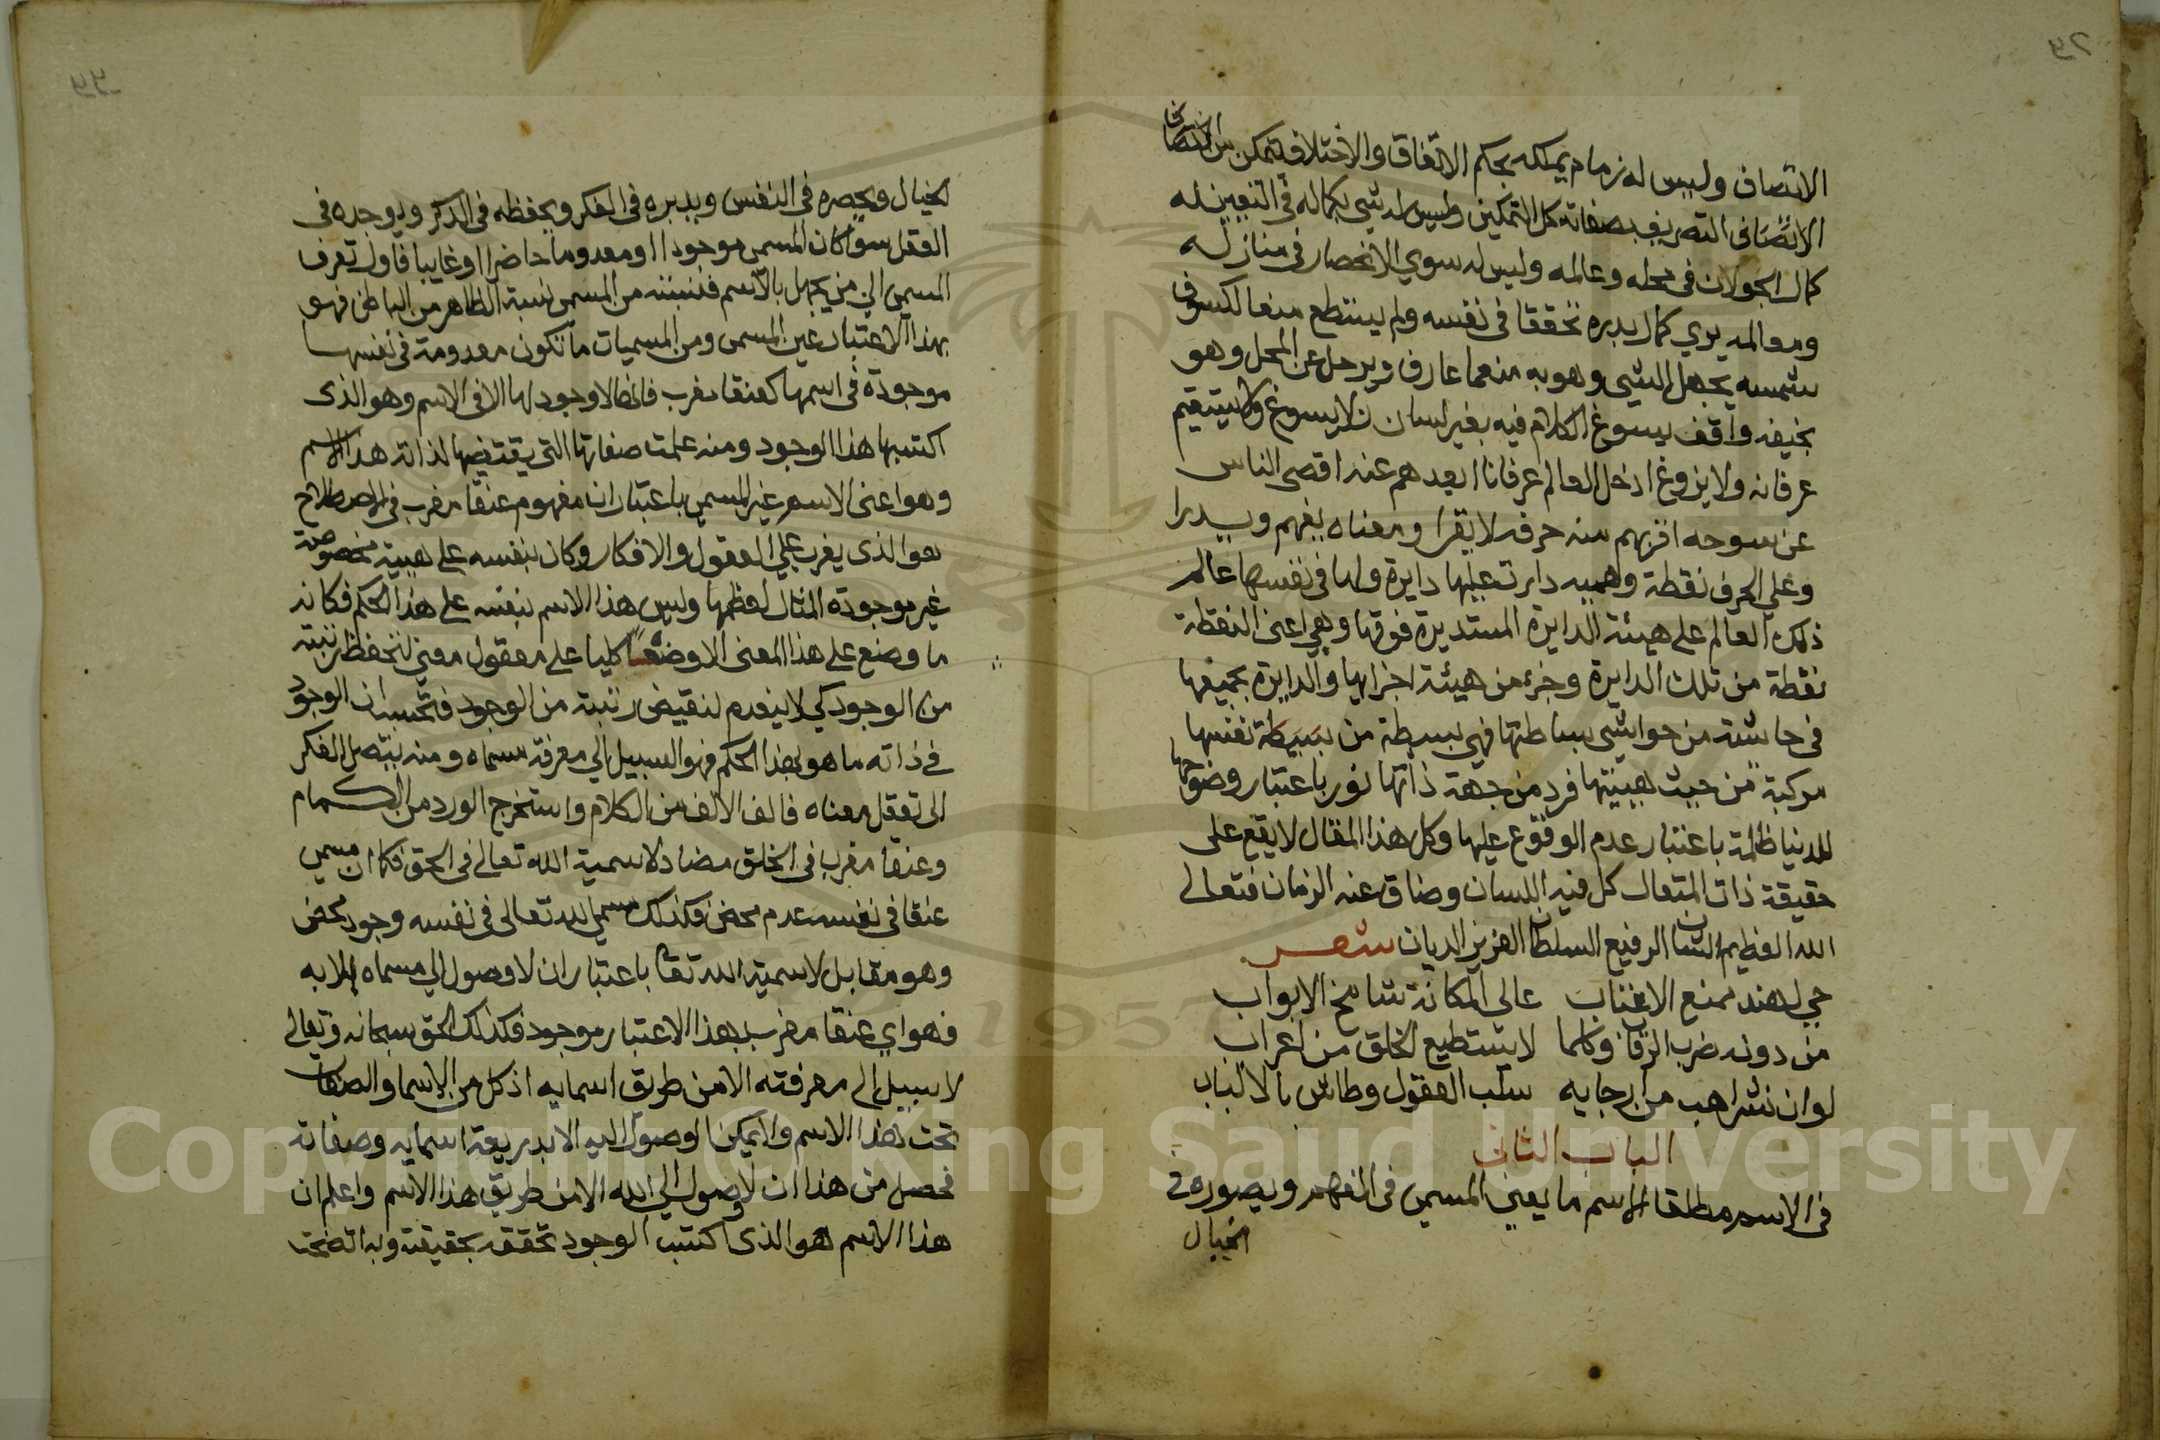 الاتصاف وليس له زمام يملكه بحكم الاتفاق والاختلاف يتمكن من
الاتصاف التصريف بصفاته كل التمكين وليس له شي بكماله في التعيين له
كمال الجولان في محله وعالمه وليس له سوي الانحصار في منازله
ومعالمه يري كمال بدره تحققا في نفسه ولم يستطع منعا لكسوف
شمسه يجهل الشي وهو به منعما عارف ويرحل عن المحل وهو
بخيفه واقف يسوغ الكلام فيه بغير لسان ولا يسوغ ولا يستقيم
عرفانه ولا يزوغ ادخل العالم عرفانا ابعدهم عنه اقصي الناس
عن سوحه اقربهم منه حرفه لا يقرا ومعناه يفهم ويدرا
وعلي الحرف نقطة وهميه دارت عليها دايرة ولها في نفسها عالم
ذلك العالم علي هيئة الدايرة المستديرة فوقها وهي اعني النقطة
نقطة من تلك الدايرة وجزء من هيئة اجزايها والدايرة بجميعها
في حاشية من حواشي بساطتها فهي بسيطة من بسيطة نفسها
مركبة من حيث هيئتها فرد من جهة ذاتها نور باعتبار وضوحها
للدنيا ظلمة باعتبار عدم الوقوع عليها وكل هذا المقال لا يقع علي
حقيقة ذات المتعال كل فيه اللسان وضاق عنه الزمان فتعالي
الله العظيم الشان الرفيع السلطان العزيز الديان شعر
حي لهند ممنع الاعتاب عالي المكانة شامخ الابواب
من دونه ضرب الرقاب وكلما لا يستطيع الخلق من اعراب
لو ان نشرا هب من ارجايه سلب العقول وطاش بالالباب
الباب الثاني
في الاسم مطلقا الاسم ما يعين المسمي في الفهم ويصوره في
الخيال
الخيال ويحصره في النفس ويدبره في الفكر ويحفظه في الذكر ويوجده في
العقل سوا كان المسمي موجودا او معدوما حاضرا او غايبا فاول تعرف
المسمي الي من يجهل بالاسم فنسبته من المسمي نسبة الظاهر من الباطن فهو
بهذا الاعتبار عين المسمي ومن المسميات ما تكون معدومة في نفسها
موجودة في اسمها كعنقا مغرب فانها لا وجود لها الا في الاسم وهو الذي
اكتسبها هذا الوجود ومنه علمت صفاتها التي يقتضيها لذاته هذا الاسم
وهو اعني الاسم غير المسمي باعتبار ان مفهوم عنقا مغرب في الاصطلاح
هو الذي يغرب علي العقول والافكار وكان بنفسه علي هيئة مخصوصة
غير موجودة المثال لعظمها وليس هذا الاسم بنفسه علي هذا الحكم فكانه
ما وضع علي هذا المعني الا وضعا كليا علي معقول معني لتحفظ رتبته
من الوجود كي لا ينعدم رتبة من الوجود فتحسب ان الوجود
في ذاته ما هو بهذا الحكم فهو السبيل الي معرفة مسماه ومنه يتصل الفكر
الي تعقل معناه فالف الالف من الكلام واستخرج الورد من الكمام
وعنقا مغرب في الخلق مضاد لاسمية الله تعالي في الحق فكما ان مسمي
عنقا في نفسه عدم محض فكذلك مسمي الله تعالي في نفسه وجود محض
وهو مقابل لاسمية الله تعا باعتبار ان لا وصول الي مسماه الا به
فهو اي عنقا مغرب بهذا الاعتبار موجود فكذلك الحق سبحانه وتعالي
لا سبيل الي معرفته الا من طريق اسمايه اذ كل من الاسما والصفات
تحت هذا الاسم ولا يمكن الوصول اليه الا بذريعة اسمايه وصفاته
فحصل من هذا ان لا وصول الي الله الا من طريق هذا الاسم واعلم ان
هذا الاسم هو الذي اكتسب الوجود تحققه بحقيقته وبه اتضحت
Copyright © King Saud University
1957